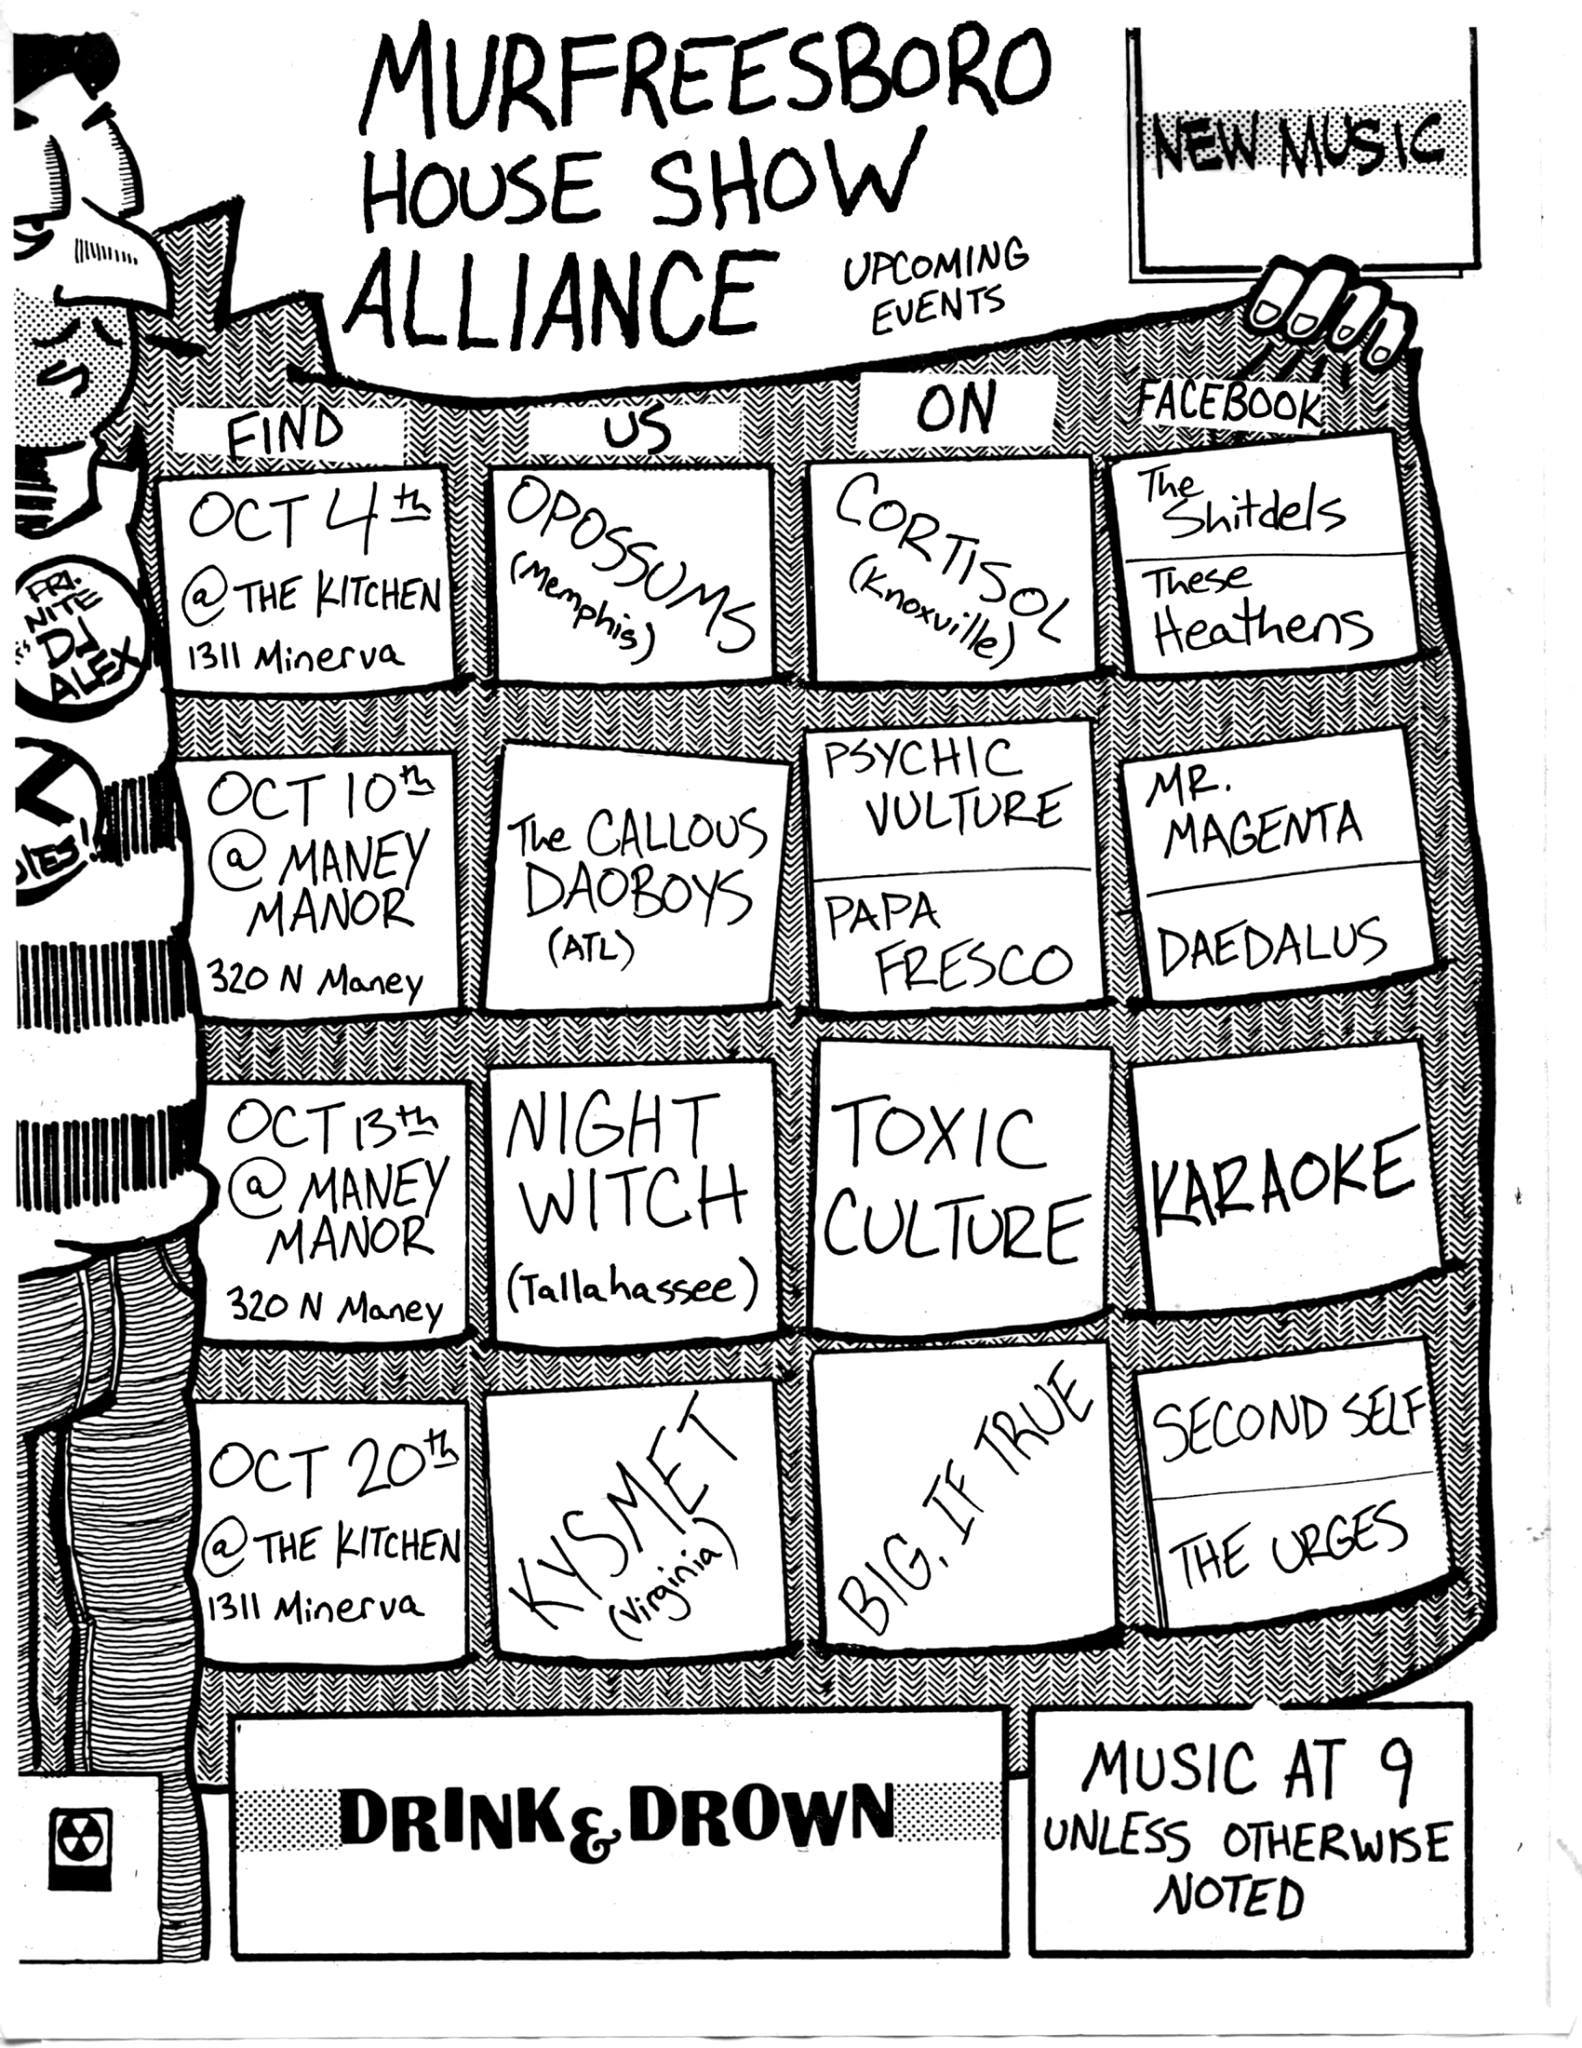 MURFREESBORO
HOUSE SHOW
ALLIANCE
UPCOMING
EVENTS
NEW MUSIC
FIND
US
ON
FACEBOOK
OCT 4th
@ THE KITCHEN
1311 Minerva
OPOSSUMS
(Memphis)
CORTISOL
(Knoxville)
The
Shitdels
These
Heathens
FRI.
NITE
DJ
ALEX
OCT 10th
@ MANEY
MANOR
320 N Maney
The CALLOUS
DAOBOYS
(ATL)
PSYCHIC
VULTURE
PAPA
FRESCO
MR.
MAGENTA
DAEDALUS
OCT 13th
@ MANEY
MANOR
320 N Maney
NIGHT
WITCH
(Tallahassee)
TOXIC
CULTURE
KARAOKE
OCT 20th
@ THE KITCHEN
1311 Minerva
KYSMET
(Virginia)
BIG, IF TRUE
SECOND SELF
THE URGES
DRINK & DROWN
MUSIC AT 9
UNLESS OTHERWISE
NOTED